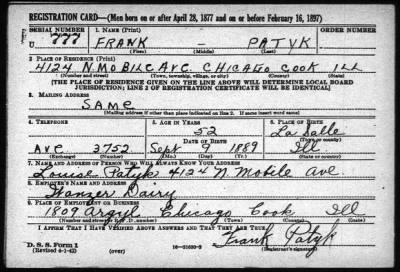 REGISTRATION CARD—(Men born on or after April 28, 1877 and on or before February 16, 1897)
SERIAL NUMBER 1. NAME (Print) ORDER NUMBER
U 777 FRANK PATYK
(First) (Middle) (Last)
2. PLACE OF RESIDENCE (Print)
4124 N. MOBILE AVE. CHICAGO COOK ILL
(Number and street) (Town, township, village, or city) (County) (State)
[THE PLACE OF RESIDENCE GIVEN ON THE LINE ABOVE WILL DETERMINE LOCAL BOARD
JURISDICTION; LINE 2 OF REGISTRATION CERTIFICATE WILL BE IDENTICAL]
3. MAILING ADDRESS
SAME
[Mailing address if other than place indicated on line 2. If same insert word same]
4. TELEPHONE 5. AGE IN YEARS 6. PLACE OF BIRTH
52 La Salle
DATE OF BIRTH (Town or county)
Ave 3752 Sept 9 1889 Ill
(Exchange) (Number) (Mo.) (Day) (Yr.) (State or country)
7. NAME AND ADDRESS OF PERSON WHO WILL ALWAYS KNOW YOUR ADDRESS
Louise Patyk 4124 N. Mobile Ave.
8. EMPLOYER'S NAME AND ADDRESS
Wanzer Dairy
9. PLACE OF EMPLOYMENT OR BUSINESS
1809 Argyl Chicago Cook Ill
(Number and street or R. F. D. number) (Town) (County) (State)
I AFFIRM THAT I HAVE VERIFIED ABOVE ANSWERS AND THAT THEY ARE TRUE.
Frank Patyk
D. S. S. Form 1
(Revised 4-1-42) (over) (Registrant's signature)